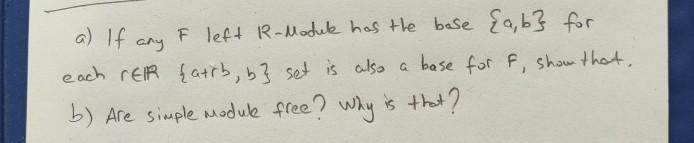 a) If any F left R-Module has the base {a,b} for
each r∈R {a+rb, b} set is also a base for F, show that.
b) Are simple module free? Why is that?